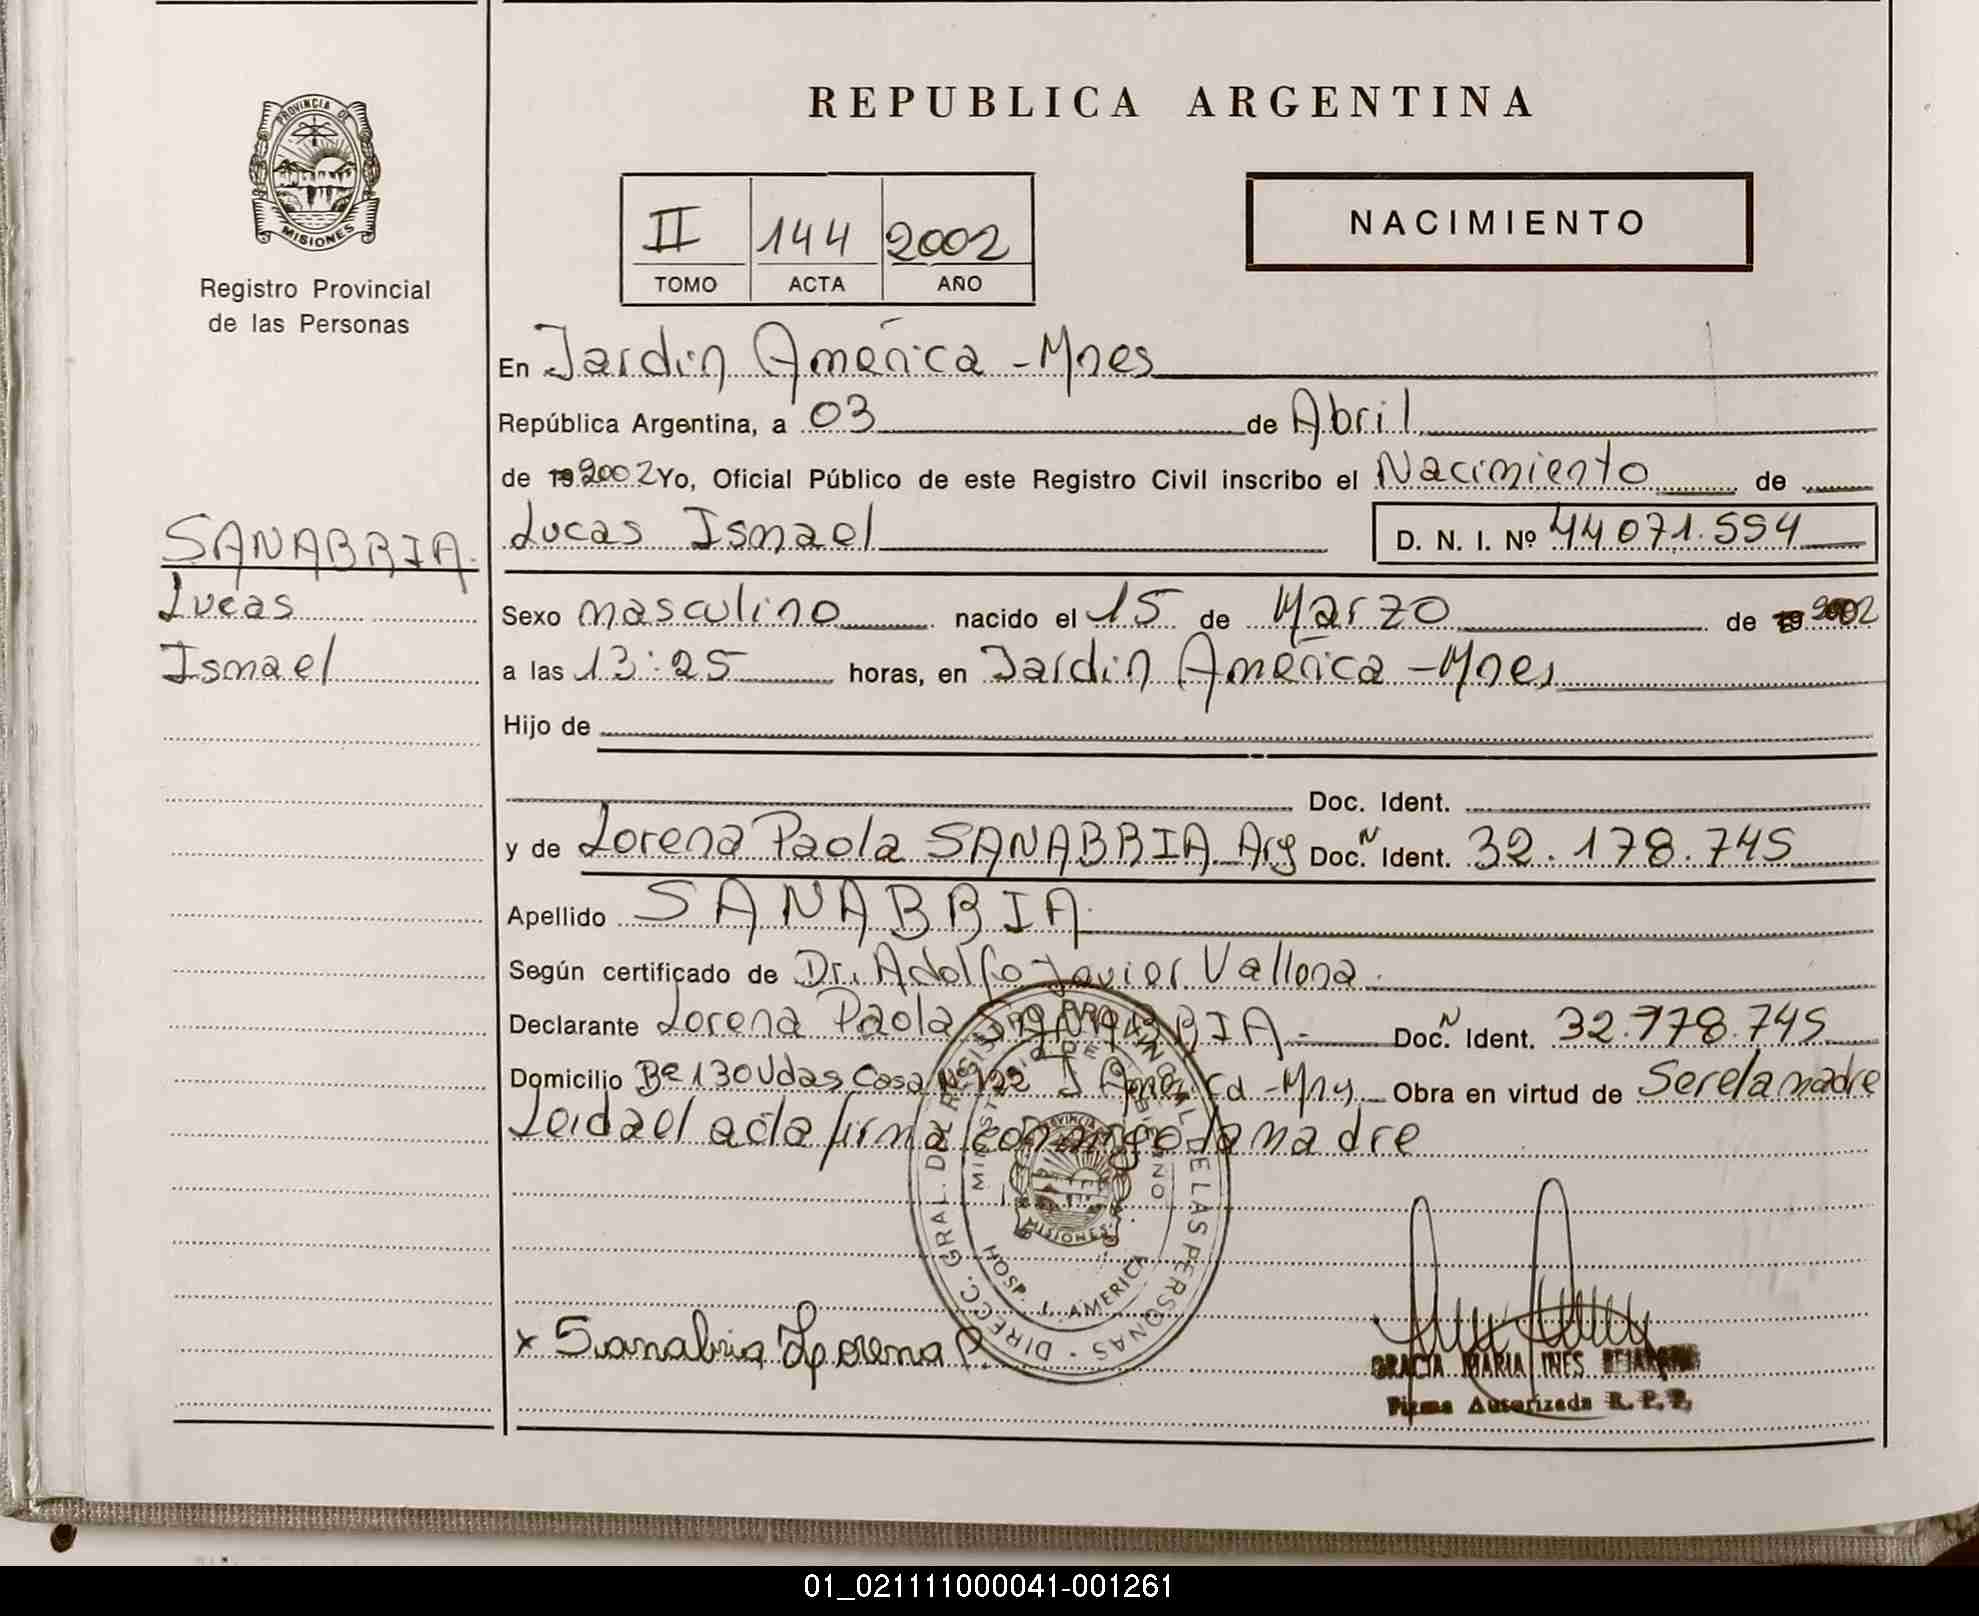 REPUBLICA ARGENTINA
PROVINCIA DE
MISIONES
Registro Provincial
de las Personas
II 144 2002
TOMO ACTA AÑO
NACIMIENTO
En Jardin América - Mnes
República Argentina, a 03 de Abril
de 19 2002 Yo, Oficial Público de este Registro Civil inscribo el Nacimiento de
SANABRIA
Lucas
Ismael
Lucas Ismael D. N. I. Nº 44071.554
Sexo masculino nacido el 15 de Marzo de 19 2002
a las 13:25 horas, en Jardin América - Mnes
Hijo de
Doc. Ident.
y de Lorena Paola SANABRIA Arg Doc. N Ident. 32.178.745
Apellido SANABRIA
Según certificado de Dr. Adolfo Javier Vallona
Declarante Lorena Paola SANABRIA - Doc. N Ident. 32.178.745
Domicilio Bº 130 Vdas Casa Nº 122 J América - Mns Obra en virtud de Ser el a madre
Leida el acta firma conmigo la madre
DIRECC. GRAL. DE REGISTRO PROVINCIAL DE LAS PERSONAS
MINISTERIO DE GOBIERNO
PROVINCIA
MISIONES
HOSP. J. AMERICA
x Sanabria Lorena P.
GRACIA MARIA INES
Firma Autorizada R. P. P.
01_021111000041-001261